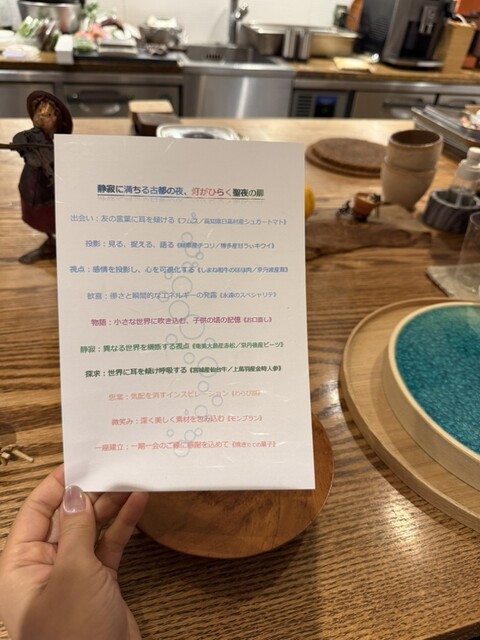 静寂に満ちる古都の夜、灯がひらく聖夜の扉
出会い：友の言葉に耳を傾ける《フェムノ／高知県日高村産シュガートマト》
投影：見る、捉える、語る《岐阜産チコリ／博多産甘うぃキウイ》
視点：感情を投影し、心を可視化する《しまね和牛のほほ肉／京丹波産茸》
歓喜：儚さと瞬間的なエネルギーの発露《永遠のスペシャリテ》
物語：小さな世界に吹き込む、子供の頃の記憶《お口直し》
静寂：異なる世界を横断する視点《奄美大島産赤松／京丹後産ビーツ》
探求：世界に耳を傾け呼吸する《宮城産仙台牛／上鳥羽産金時人参》
気配を消すインスピレーション
微笑み：深く美しく素材を包み込む《モンブラン》
一座建立：一期一会のご縁に感謝を込めて《焼きたての菓子》